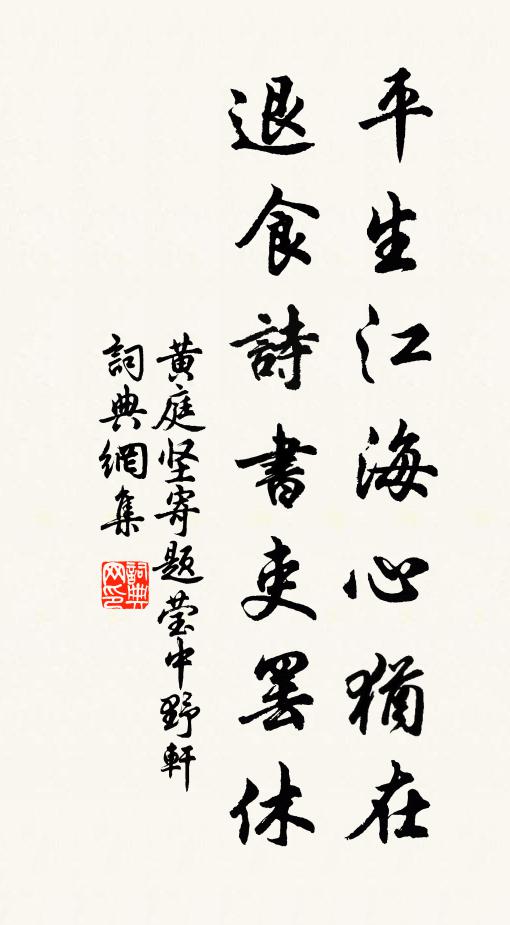 平生江海心猶在
退食詩書吏罷休
黄庭坚寄题莹中野軒
詞典網集
詞典网印